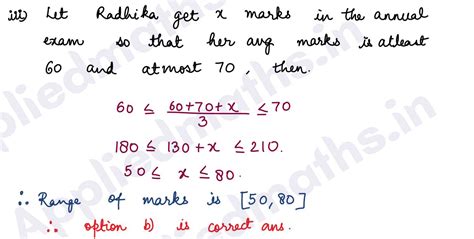 iii) Let Radhika get x marks in the annual
exam so that her avg marks is atleast
60 and atmost 70, then.
60 ≤ (60+70+x)/3 ≤ 70
180 ≤ 130 + x ≤ 210.
50 ≤ x ≤ 80.
∴ Range of marks is [50, 80]
∴ option b) is correct ans.
Appliedmaths.in